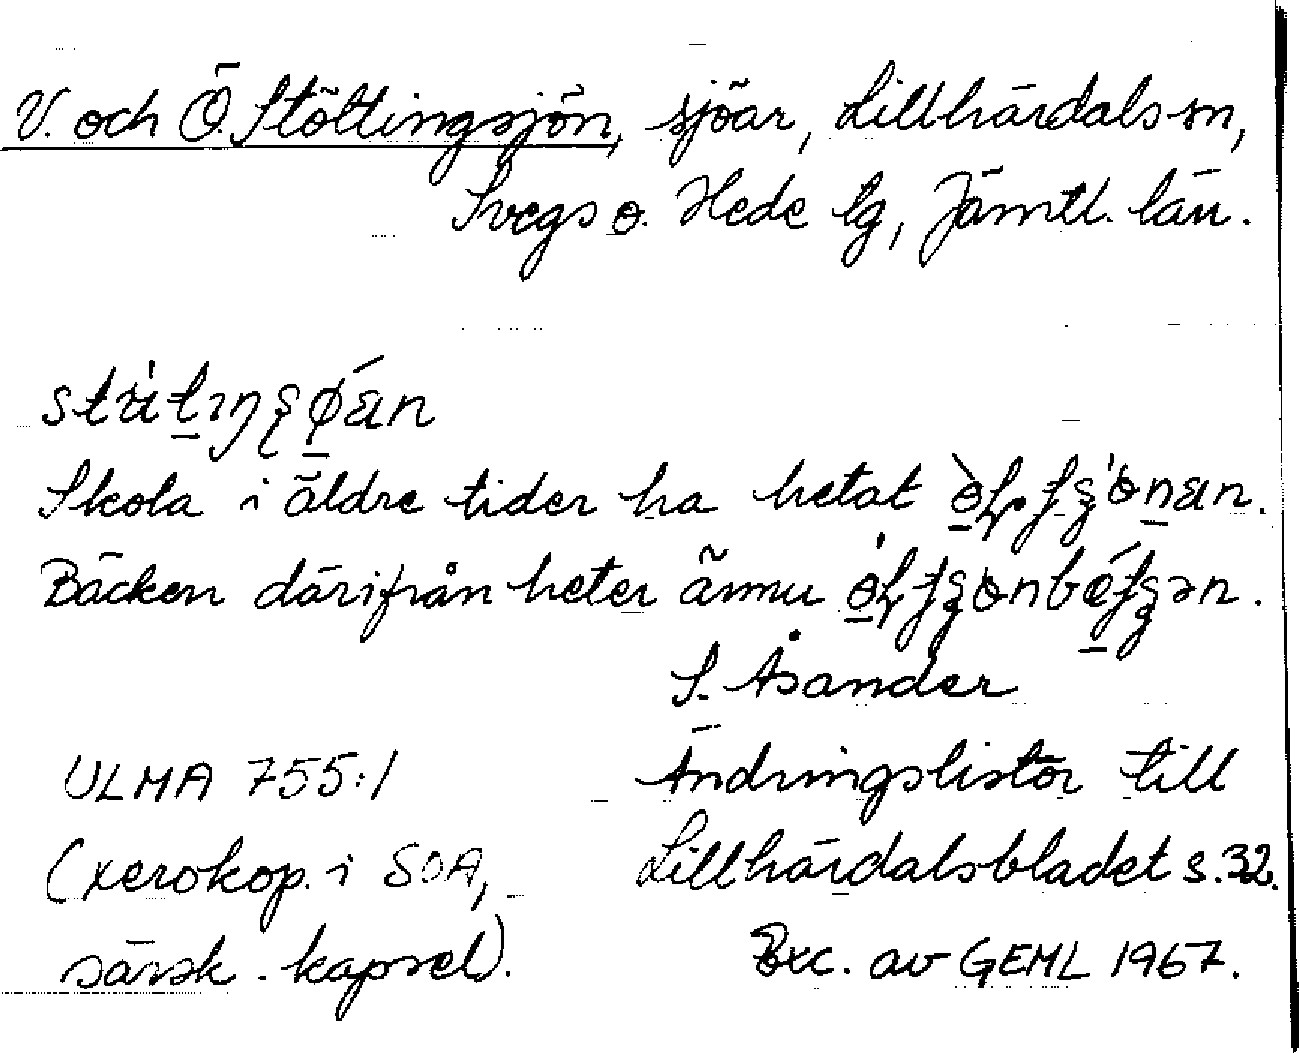 V. och Ö. Stöttingsjön, sjöar, Lillhärdals sn,
Svegs o. Hede tg, Jämtl. län.
Skola i äldre tider ha hetat
Bäcken därifrån heter ännu
S. Åsander
ULMA 755:1 Ändringslistor till
(xerokop. i SOA, Lillhärdalsbladet s. 32.
särsk. kapsel). Exc. av GEML 1967.